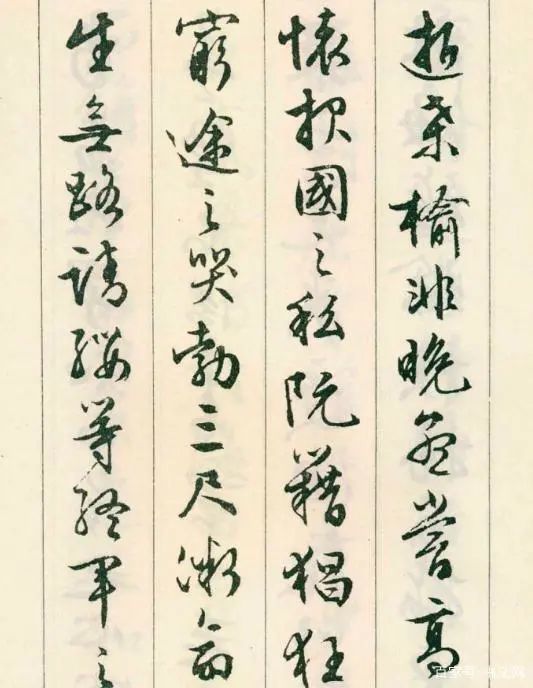 逝桒榆非晚孟嘗高
懷報國之私阮籍猖狂
窮途之哭勃三尺微命
生無路請纓等終軍之
百家号